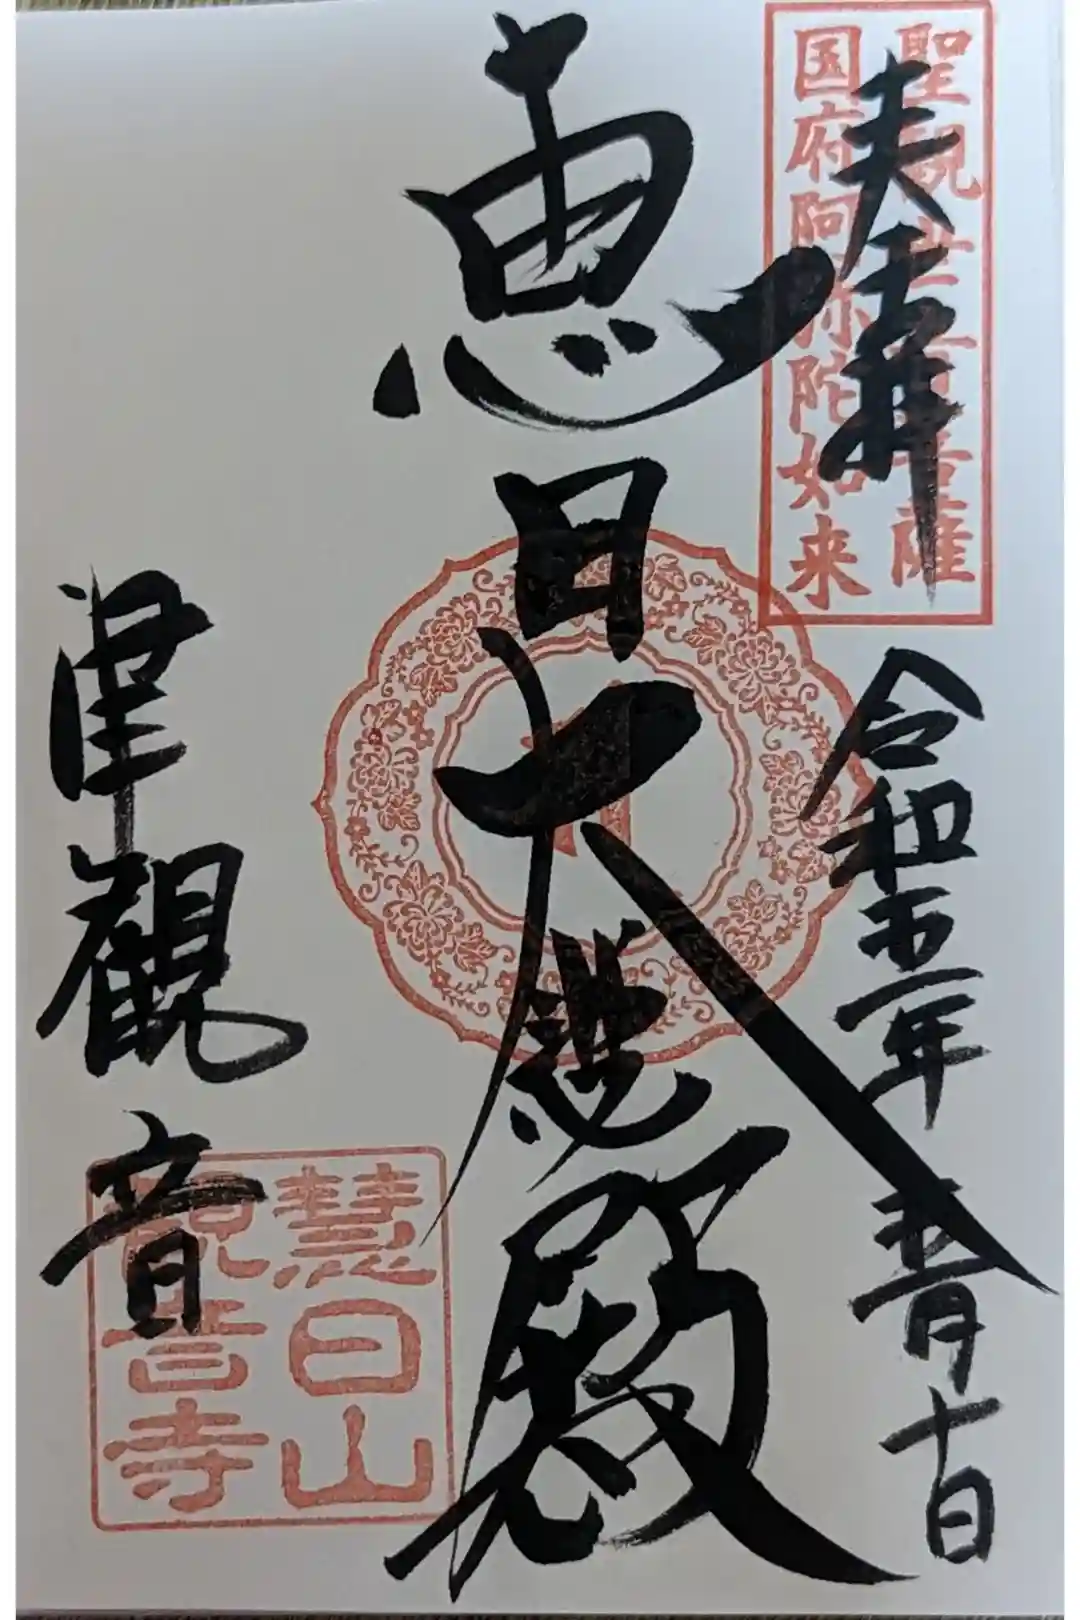 奉拝
聖観世音菩薩
国府阿弥陀如来
令和五年
十日
恵日大悲殿
津観音
慧日山
観音寺